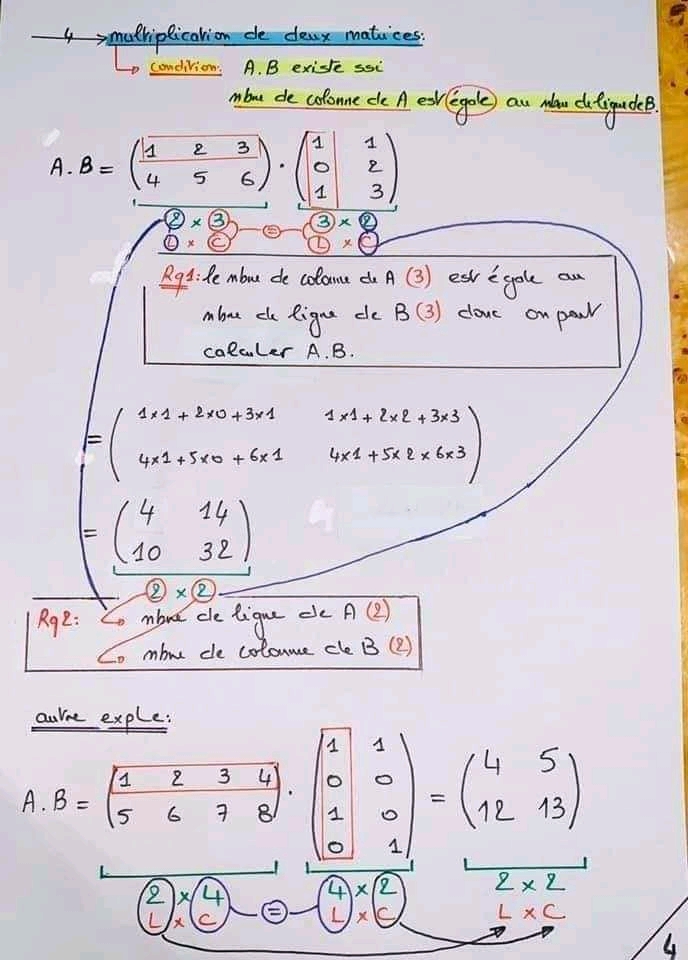 4 → multiplication de deux matrices:
Condition: A.B existe ssi
nbre de colonne de A est égale au nbre de ligne de B.
A.B = ( 1 2 3 ) . ( 1 1 )
( 4 5 6 ) ( 0 2 )
( 1 3 )
2 x 3 3 x 2
L x C = L x C
Rq1: le nbre de colonne de A (3) est égale au
nbre de ligne de B (3) donc on peut
calculer A.B.
= ( 1x1 + 2x0 + 3x1 1x1 + 2x2 + 3x3 )
( 4x1 + 5x0 + 6x1 4x1 + 5x2 x 6x3 )
= ( 4 14 )
( 10 32 )
2 x 2
Rq2: nbre de ligne de A (2)
nbre de colonne de B (2)
autre exple:
A.B = ( 1 2 3 4 ) . ( 1 1 ) = ( 4 5 )
( 5 6 7 8 ) ( 0 0 ) ( 12 13 )
( 1 0 )
( 0 1 )
2 x 4 = 4 x 2 2 x 2
L x C L x C L x C
4